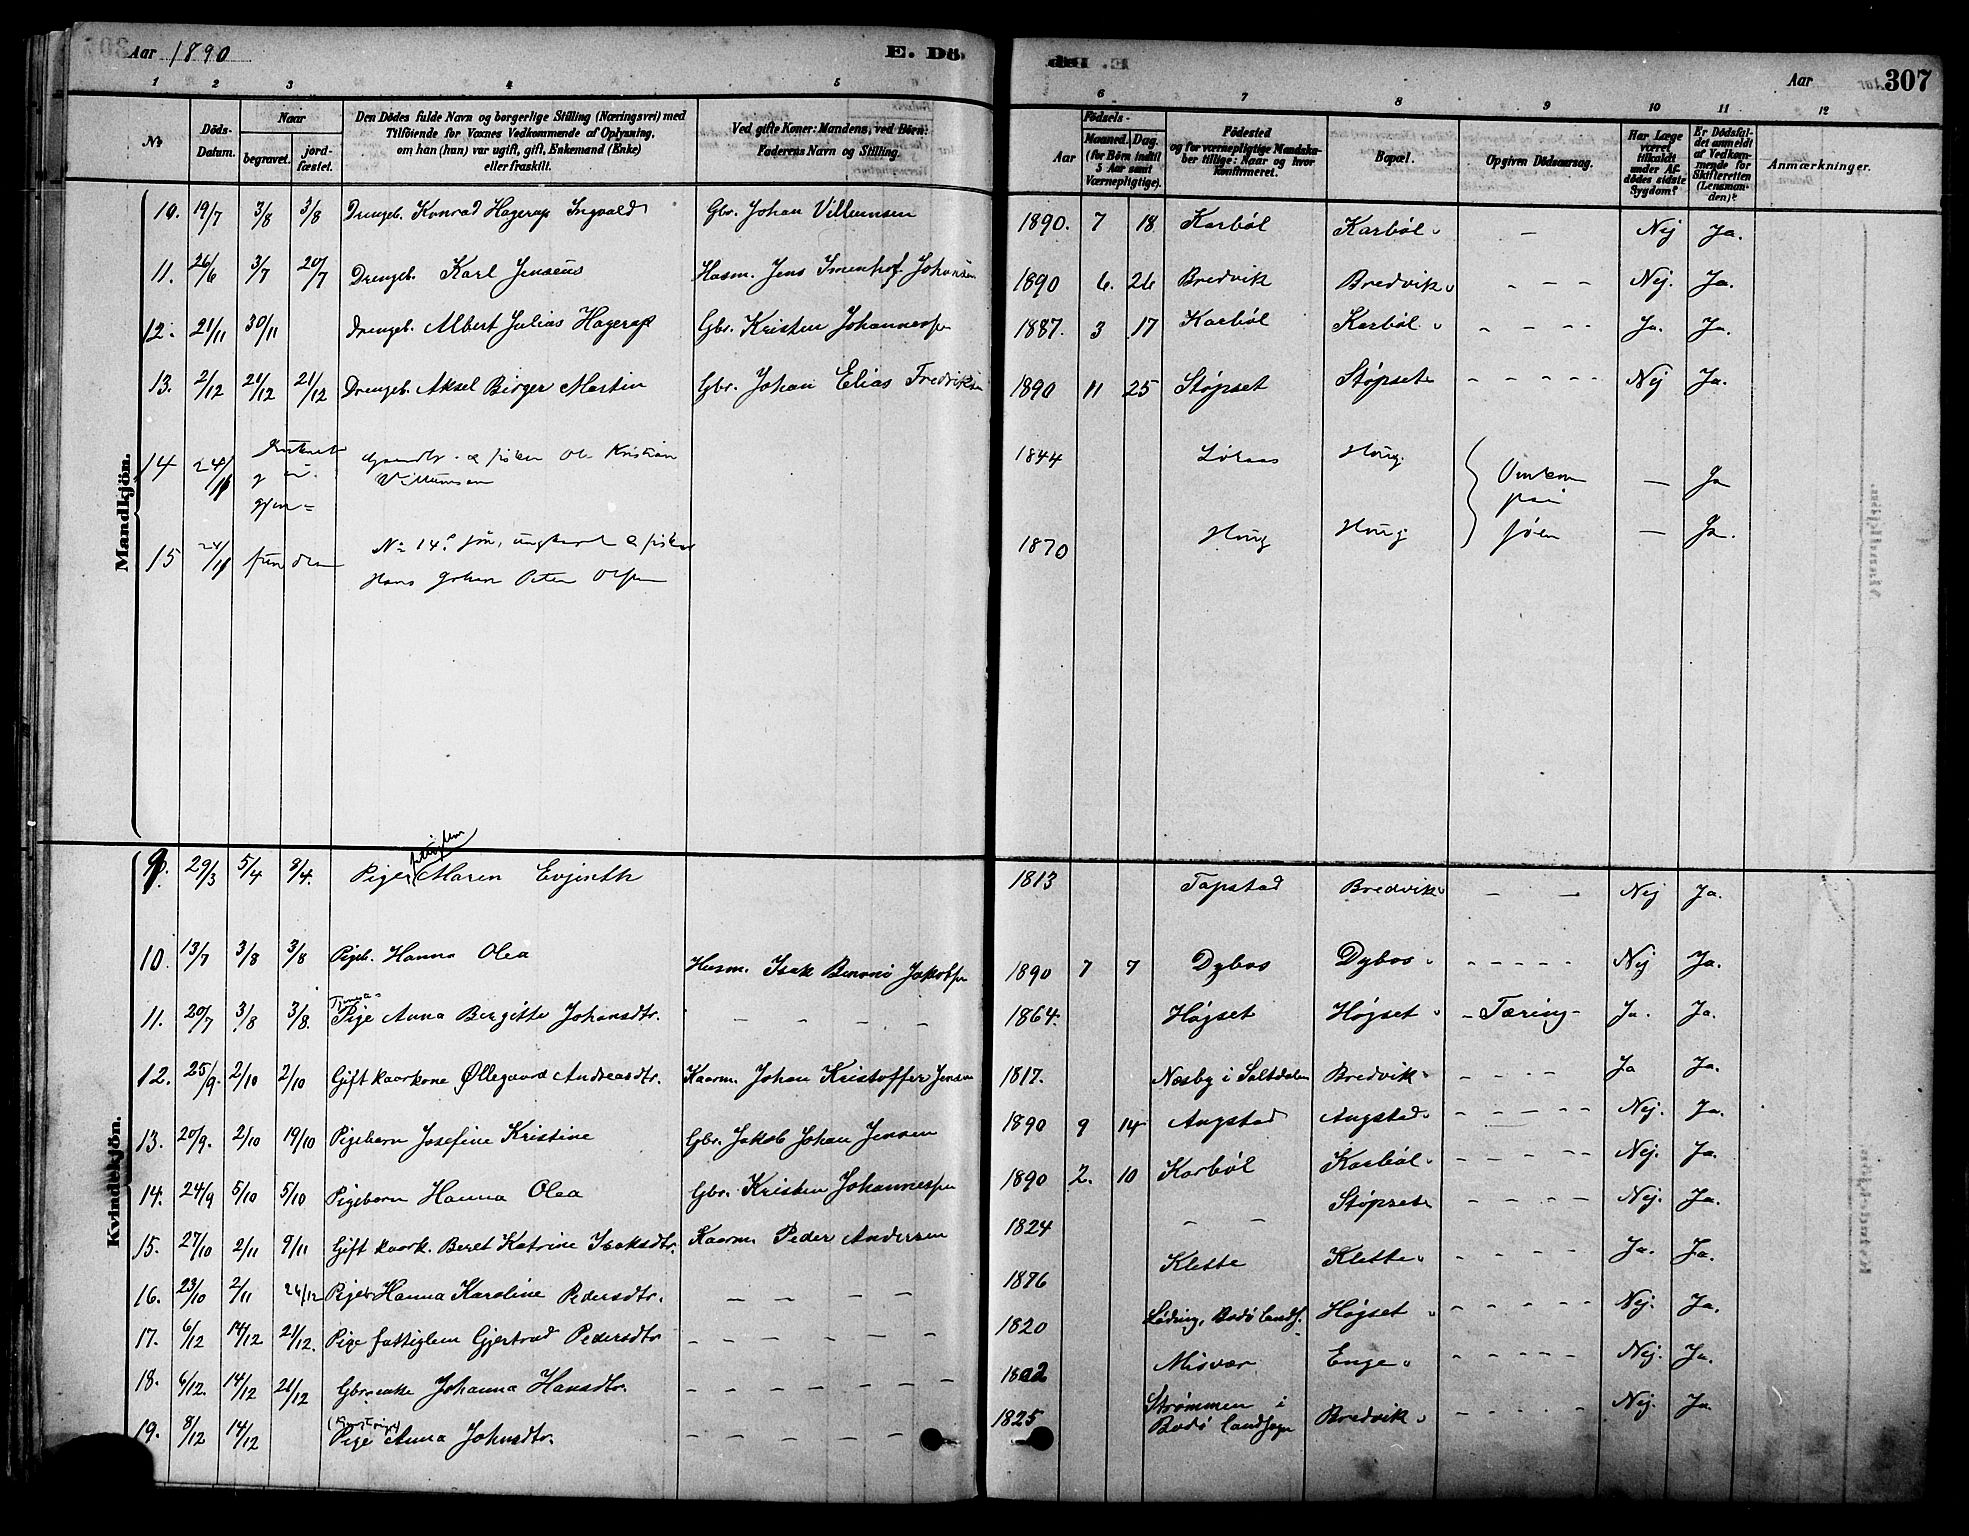 Aar 1890
E. Dö
Aar
307
1 2 3 4 5
6 7 8 9 10 11 12
No
Döds-Datum.
Naar
begravet.
jord-fæstet.
Den Dödes fulde Navn og borgerlige Stilling (Næringsvei) med
Tilföiende for Voxnes Vedkommende af Oplysning,
om han (hun) var ugift, gift, Enkemand (Enke)
eller fraskilt.
Ved gifte Koner: Mandens, ved Börn:
Faderens Navn og Stilling.
Födsels-
Aar
Maaned. Dag.
(for Börn indtil
5 Aar samt
Værnepligtige).
Födested
og for værnepligtige Mandska-
ber tillige: Naar og hvor
konfirmeret.
Bopæl.
Opgiven Dödsaarsag.
Har Læge
været
tilkaldt
under Af-
dödes sidste
Sygdom?
Er Dödsfal-
det anmeldt
af Vedkom-
mende for
Skifteretten
(Lensman-
den)?
Anmærkninger.
Mandkjön.
10. 19/7 3/8 3/8 Drengeb. Konrad Hagerup Ingvald Gbr. Johan Villumsen 1890. 7 18 Karbøl Karbøl. - Nej Ja.
11. 26/6 3/7 20/7 Drengeb. Karl Jenseus Husm. Jens Johansen 1890 6. 26 Bredvik Bredvik. - - - Nej. Ja.
12. 21/11 30/11 Drengeb. Albert Julias Hagerup Gbr. Kristen Johannesen 1887. 3 17 Karbøl Karbøl. - - - - Ja. Ja.
13. 2/12 21/12 21/12 Drengeb. Aksel Birger Martin Gbr. Johan Elias Fredriksen 1890 11 25 Støpset Støpset. - - - - - Nej Ja.
14 24/11 Ole Kristian Villumsen 1844 Haug - Ja
15 24/11 funden No 14s søn, ungkarl & fisker 1870 Haug Haug søen - Ja.
Hans Johan Peter Olsen
Kvindekjön.
9. 29/3 5/4 8/4. Pige Maren Evjenth 1813 Tapstad Bredvik. - - Nej Ja.
10. 13/7 3/8 3/8 Pigeb. Hanna Olea Husm. Isak Benoni Jakobsen 1890 7 7 Dybos Dybos. - - - - - Nej Ja.
11. 20/7 3/8 3/8. Pige Anna Bergitte Johansdtr. - - - - - 1864. Højset Højset. - Tæring - Ja. Ja.
12. 25/9. 2/10 2/10 Gift kaarkone Øllegaard Andreasdtr. Kaarm. Johan Kristoffer Jensen 1817. Næsby i Saltdalen Bredvik. - - - - Ja Ja.
13. 20/9. 2/10 19/10 Pigebarn Josefine Kristine Gbr. Jakob Johan Jensen 1890 9 14 Angstad Angstad. - - - - - Nej. Ja.
14. 24/9 5/10 5/10 Pigebarn Hanna Olea Gbr. Kristen Johannesen 1890 2. 10 Karbøl Karbøl. - - - - Nej. Ja.
15. 27/10 2/11 9/11 Gift kaark. Beret Katrine Isaksdtr. Kaarm. Peder Andersen 1824 - - Støpset. - - - - Nej. Ja.
16. 23/10 2/11 26/12 Pigeb. Hanna Karoline Pedersdtr. - - - - 1876 Klette Klette. - - - - Ja. Ja.
17. 6/12 14/12 21/12. Pige fattiglem Gjertrud Pedersdtr - - - - - - 1820 Løding, Bodø lands. Højset. - - - - - Nej. Ja.
18. 6/12. 14/12 21/12 Gbr. enke Johanna Hansdtr. - - - - - - - 1802 Misvær Enge. - - - - - Nej. Ja.
19. 8/12 14/12 Pige Anna Johnsdtr. - - - - - - 1825 Strømmen i Bodø landsogn Bredvik. - - - - Nej. Ja.